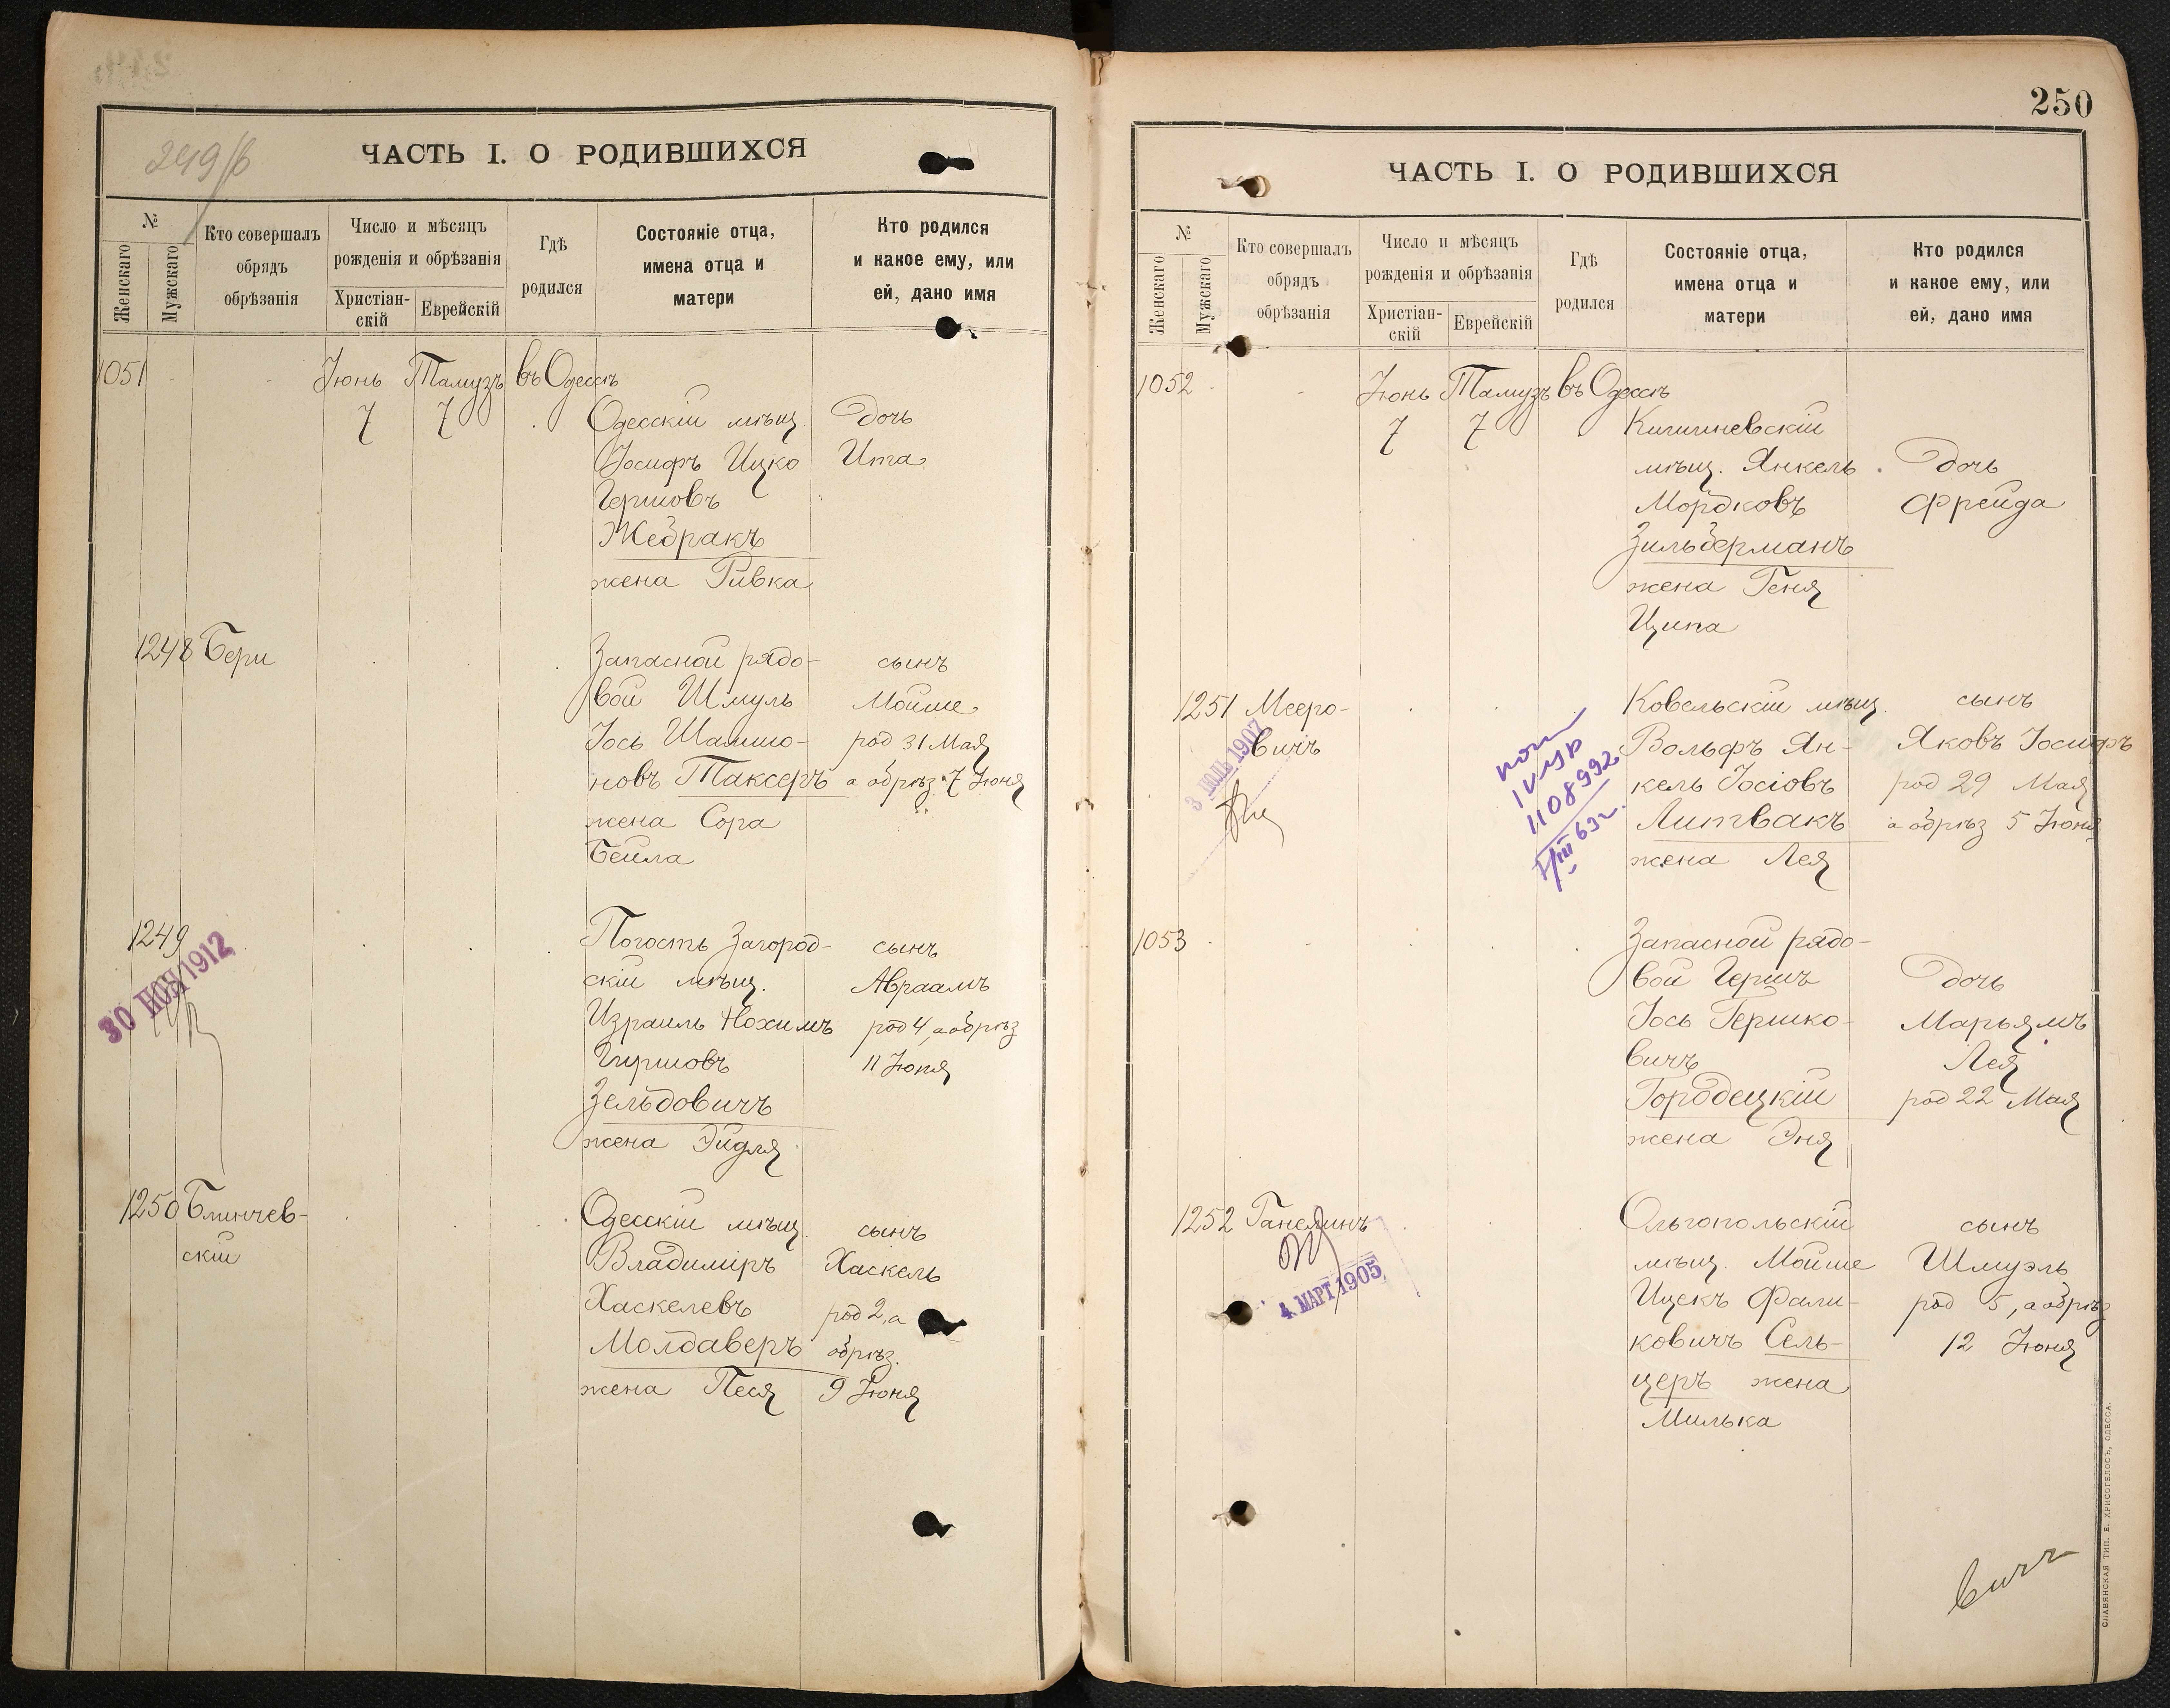 249/б
ЧАСТЬ I. О РОДИВШИХСЯ
№
Женскаго
Мужскаго
Кто совершалъ
обрядъ
обрѣзанія
Число и мѣсяцъ
рожденія и обрѣзанія
Христіан-
скій
Еврейскій
Гдѣ
родился
Состояніе отца,
имена отца и
матери
Кто родился
и какое ему, или
ей, дано имя
1051 Іюнь Тамузъ въ Одессѣ
7 7 Одесскій мѣщ. дочь
Іосифъ Ицко Ита
Гершовъ
Жебракъ
жена Ривка
1248 Бери Запасной рядо- сынъ
вой Шмуль Мойше
Іось Шамшо- род 31 Мая
новъ Таксеръ а обрѣз. 7 Іюня
жена Сора
Бейла
1249 Погость Загород- сынъ
скій мѣщ. Авраамъ
Израиль Нохимъ род 4, а обрѣз
Гиршовъ 11 Іюня
Зельдовичъ
жена Эйдля
30 НОЯ 1912
1250 Блинчев- Одесскій мѣщ. сынъ
скій Владиміръ Хаскель
Хаскелевъ род 2, а
Молдаверъ обрѣз.
жена Песя 9 Іюня
250
ЧАСТЬ I. О РОДИВШИХСЯ
№
Женскаго
Мужскаго
Кто совершалъ
обрядъ
обрѣзанія
Число и мѣсяцъ
рожденія и обрѣзанія
Христіан-
скій
Еврейскій
Гдѣ
родился
Состояніе отца,
имена отца и
матери
Кто родился
и какое ему, или
ей, дано имя
1052 Іюнь Тамузъ въ Одессѣ
7 7 Кишиневскій
мѣщ. Янкель дочь
Мордковъ Фрейда
Зильберманъ
жена Геня
Ципа
1251 Мееро- Ковельскій мѣщ. сынъ
вичъ Вольфъ Ян- Яковъ Іосифъ
кель Іосіовъ род 29 Мая
Литвакъ а обрѣз 5 Іюня
жена Лея
3 ІЮЛЬ 1907
1108992
1053 Запасной рядо-
вой Гершъ дочь
Іось Гершко- Марьямъ
вичъ Лея
Городецкій род 22 Мая
жена Эня
1252 Ганелинъ Ольгопольскій сынъ
мѣщ. Мойше Шмуэль
Ицекъ Фали- род 5, а обрѣз
ковичъ Сель- 12 Іюня
церъ жена
Милька
4 МАРТ 1905
вичъ
СЛАВЯНСКАЯ ТИП. Е. ХРИСОГЕЛОСЪ, ОДЕССА.